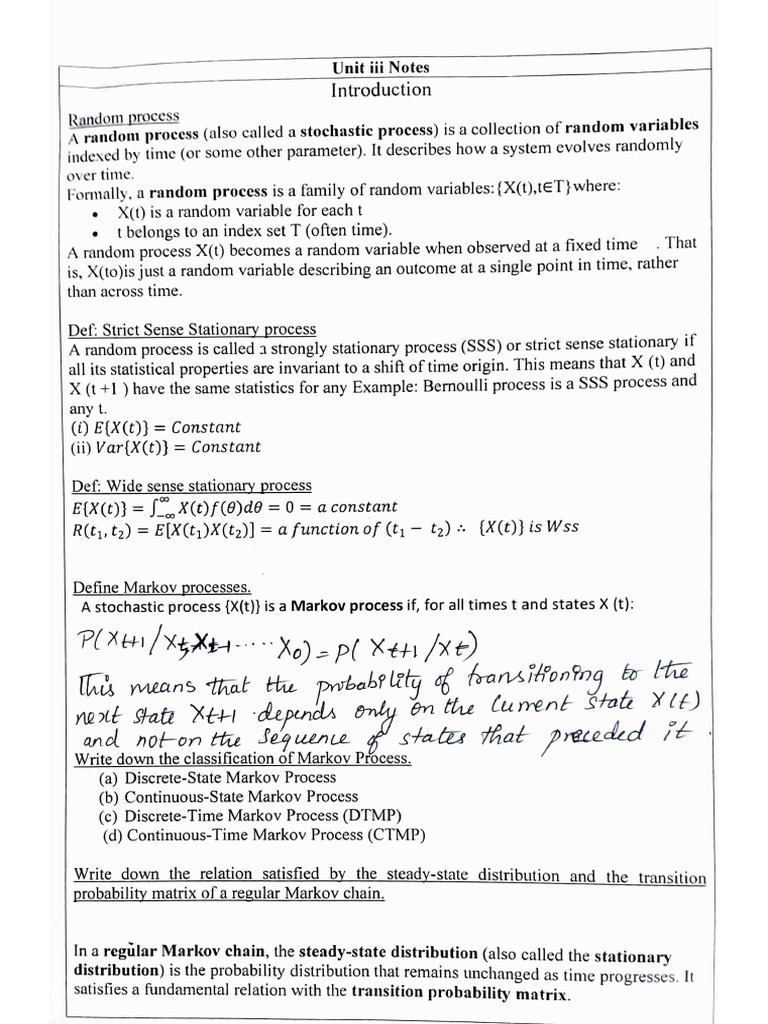 Unit iii Notes
Introduction
Random process
A random process (also called a stochastic process) is a collection of random variables
indexed by time (or some other parameter). It describes how a system evolves randomly
over time.
Formally, a random process is a family of random variables:{X(t),t∈T}where:
• X(t) is a random variable for each t
• t belongs to an index set T (often time).
A random process X(t) becomes a random variable when observed at a fixed time . That
is, X(to)is just a random variable describing an outcome at a single point in time, rather
than across time.
Def: Strict Sense Stationary process
A random process is called a strongly stationary process (SSS) or strict sense stationary if
all its statistical properties are invariant to a shift of time origin. This means that X (t) and
X (t +1 ) have the same statistics for any Example: Bernoulli process is a SSS process and
any t.
(i) E{X(t)} = Constant
(ii) Var{X(t)} = Constant
Def: Wide sense stationary process
E{X(t)} = ∫_{−∞}^{∞} X(t)f(θ)dθ = 0 = a constant
R(t₁, t₂) = E[X(t₁)X(t₂)] = a function of (t₁ − t₂) ∴ {X(t)} is Wss
Define Markov processes.
A stochastic process {X(t)} is a Markov process if, for all times t and states X (t):
P(Xt+1/Xt,Xt-1.....X0)=P(Xt+1/Xt)
This means that the probability of transitioning to the
next state Xt+1 depends only on the current state X(t)
and not on the sequence of states that preceded it.
Write down the classification of Markov Process.
(a) Discrete-State Markov Process
(b) Continuous-State Markov Process
(c) Discrete-Time Markov Process (DTMP)
(d) Continuous-Time Markov Process (CTMP)
Write down the relation satisfied by the steady-state distribution and the transition
probability matrix of a regular Markov chain.
In a regular Markov chain, the steady-state distribution (also called the stationary
distribution) is the probability distribution that remains unchanged as time progresses. It
satisfies a fundamental relation with the transition probability matrix.